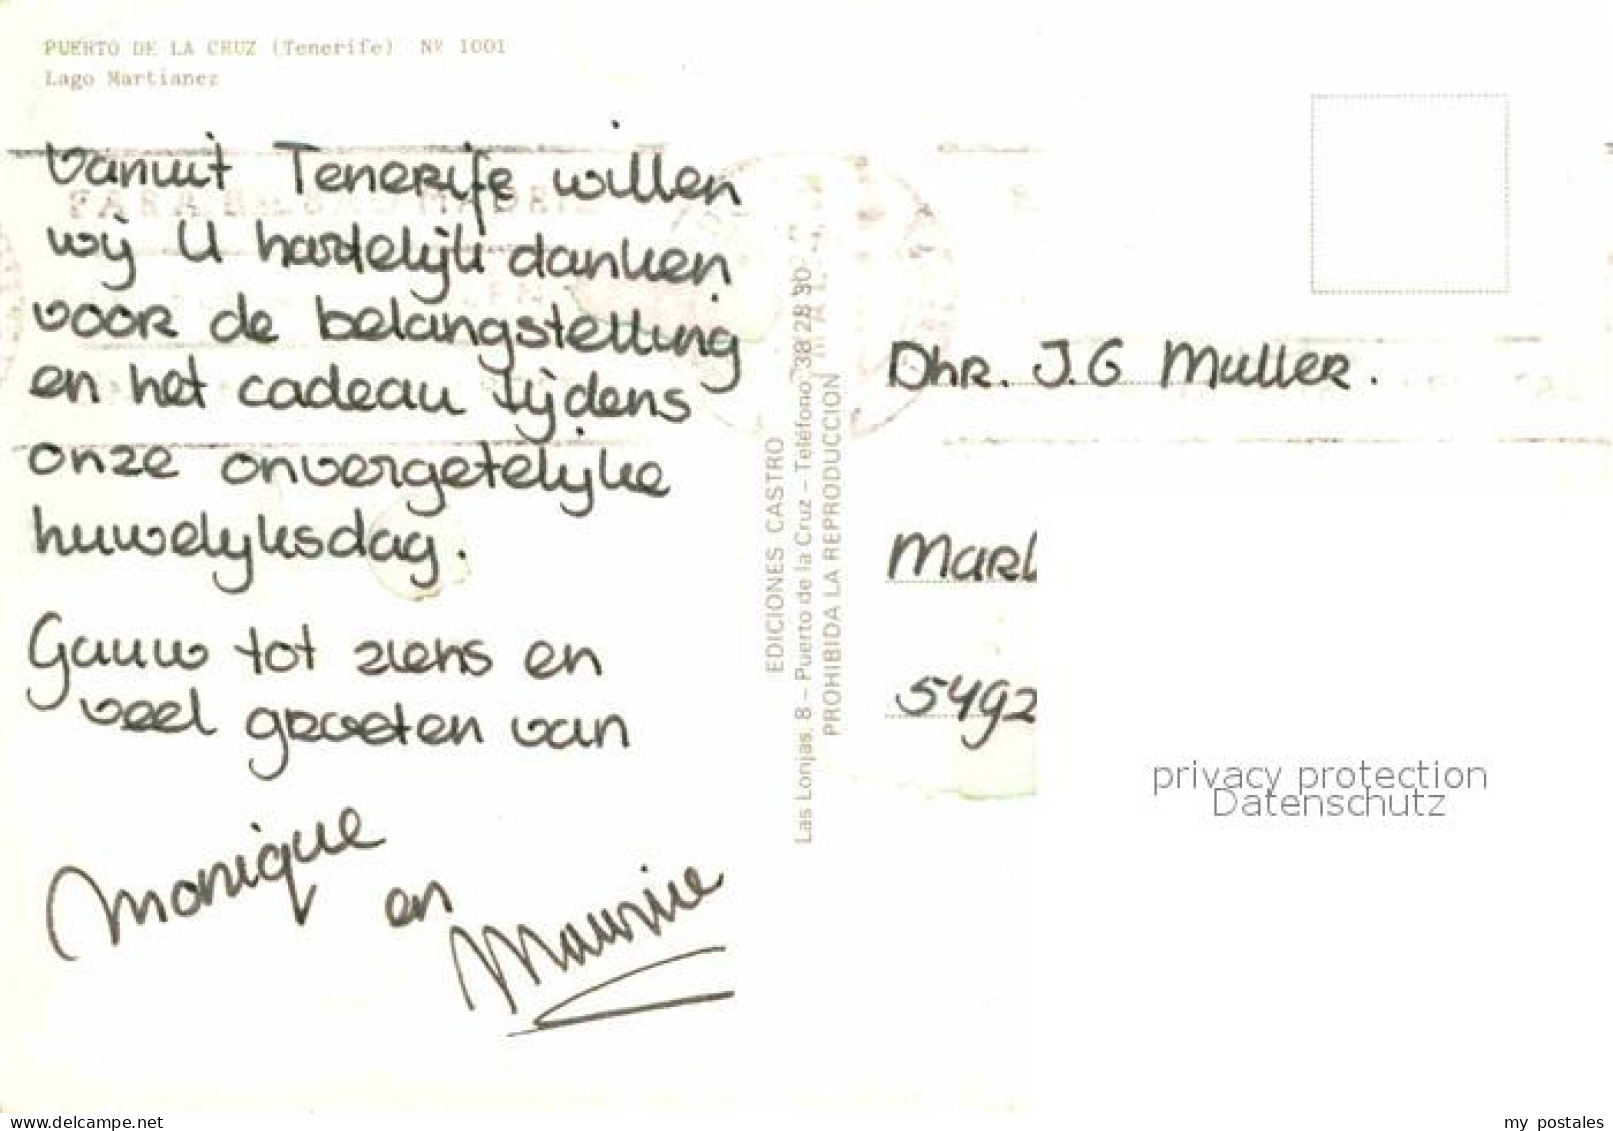 PUERTO DE LA CRUZ (Tenerife) Nº 1001
Lago Martianez
Vanuit Tenerife willen
wij U hartelijk danken
voor de belangstelling
en het cadeau tijdens
onze onvergetelijke
huwelijksdag.
Gauw tot ziens en
veel groeten van
Monique
en
Maurice
EDICIONES CASTRO
Las Lonjas, 8 – Puerto de la Cruz – Teléfono 38 28 30
PROHIBIDA LA REPRODUCCION
Dhr. J.G Muller.
Marl
5492
privacy protection
Datenschutz
delcampe.net
my postales